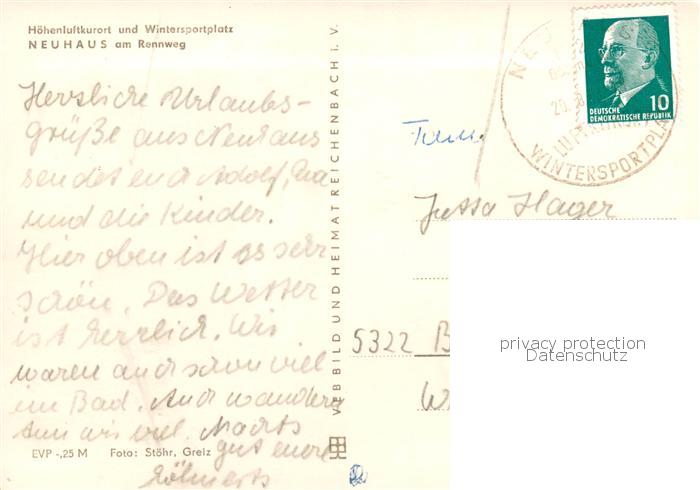 Höhenluftkurort und Wintersportplatz
NEUHAUS am Rennweg
Herzliche Urlaubs-
grüße aus Neuhaus
sendet euch Adolf,
und die Kinder.
Hier oben ist es sehr
schön. Das Wetter
ist herrlich. Wir
waren auch schon viel
im Bad. Auch wandern
tun wir viel. Machts
gut eure
EVP -,25 M Foto: Stöhr, Greiz
VEB BILD UND HEIMAT REICHENBACH i. V.
DEUTSCHE
DEMOKRATISCHE REPUBLIK 10
WINTERSPORTPLA
Jutta Hager
5322 B
W
privacy protection
Datenschutz